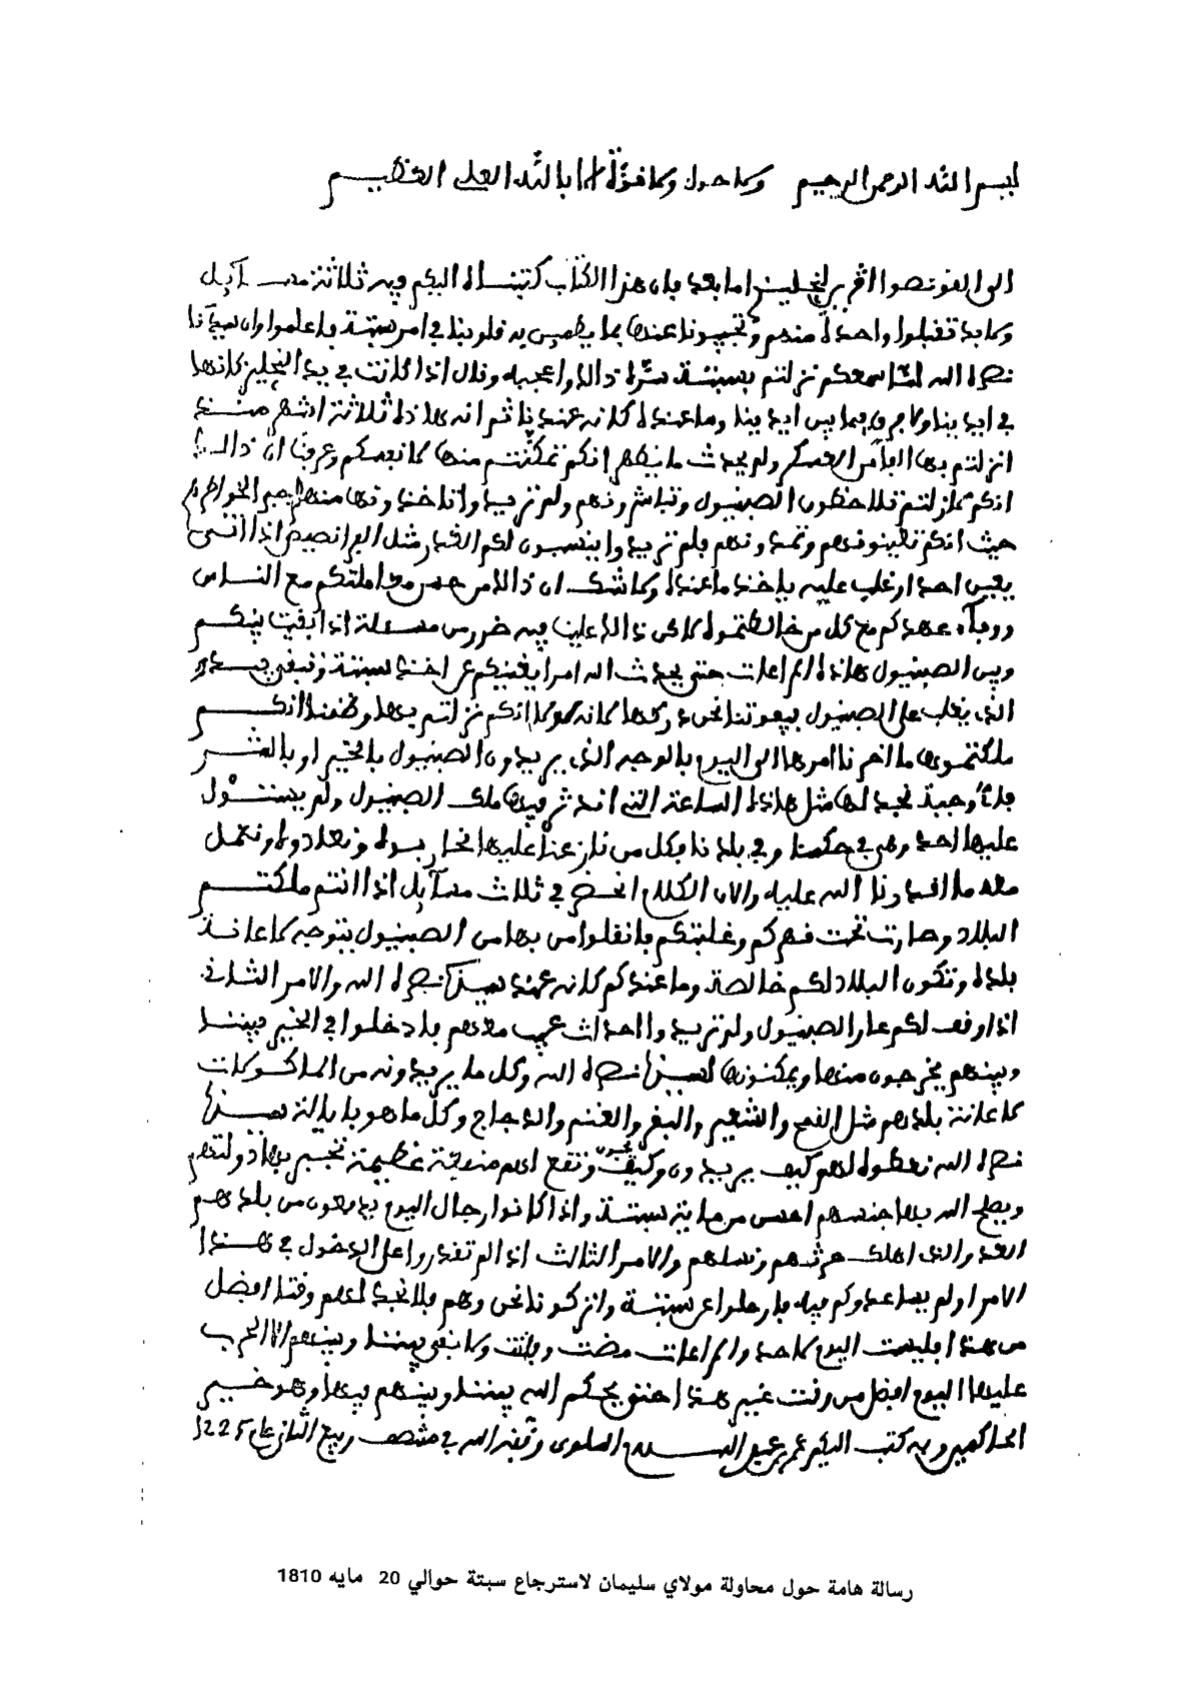 بسم الله الرحمن الرحيم ولا حول ولا قوة إلا بالله العلي العظيم
الى القونصوا اقرير انجليز اما بعد فان هذا الكتاب كتبناه اليكم فيه ثلاثة مسآيل
ولا بد تقبلوا واحدة منهم وتجيبونا عنها بما يطمئن به قلوبنا في امر سبتة فاعلموا وان سيدنا
نصره الله لما سمعكم نزلتم بسبتة سره ذالك واعجبه وقال اذا كانت في يد النجليز كانها
في ايدينا ولا فرق فيما بين ايدينا وما عنده كانه عندنا ثم انه هذه ثلاثة اشهر منذ
انزلتم بها العسكر ولم يحدث ما يظهر انكم تمكنتم منها لانفسكم وعرفنا ان ذالك
انكم مازلتم تلاحظون الصبنيول وتباشرونهم ولم تريدوا تاخذونها منهم لجبر الخواطر
حيث انكم تعينونهم وتمدونهم فلم تريدوا ينسبون لكم الغدر مثل الفرانصيص اذا اتى
يعين احدا وغلب عليه ياخذ ما عنده ولا شك ان ذالك من حسن معاملتكم مع الناس
ووفآء عهدكم مع كل من خالطتموه لاكن ذالك علينا فيه ضرر من مسئلة اذا بقيت بينكم
وبين الصبنيول هاذه المراعات حتى يحدث الله امرا يغنيكم عن اخذ سبتة وتبقى بيد
الذي يغلب على الصبنيول يفوتنا نحن دركها لانه لولا انكم نزلتم بها وظننا انكم
ملكتموها ما اخرنا امرها الى اليوم بالوجه الذي يريدون الصبنيول بالخير او بالشر
فلا وجبة نجد لها مثل هاذه الساعة التي اندثر فيها ملك الصبنيول ولم يستول
عليها احد وهي في حكمنا وفي بلدنا فكل من نازعنا عليها نحاربوه ونعادوه ونعمل
معه ما اقدرنا الله عليه والان الكلام انحصر في ثلاث مسآيل اذا انتم ملكتم
البلاد وصارت تحت قهركم وغلبتكم فانقلوا من بها من الصبنيول يتوجه لاعانة
بلده وتكون البلاد لكم خالصة وما عندكم كانه عند سيدنا نصره الله والامر الثاني
اذا وقع لكم عار الصبنيول ولم تريدوا احداث عيب معهم فادخلوا في الخير بيننا
وبينهم يخرجون منها ويمكنونها لسيدنا نصره الله وكل ما يريدونه من الماكولات
لاعانة بلدهم مثل القمح والشعير والبقر والغنم والدجاج وكل ما هو بايالة سيدنا
نصره الله نعطوه لهم كيف يريدون وكيف يحبون وتقع لهم منفعة عظيمة تجبر بها دولتهم
ويصلح الله بها جنسهم احسن من ماية سبتة واذا كانوا رجال اليوم يدفعون من بلدهم
العدو الذي اهلك حرثهم ونسلهم والامر الثالث اذا لم تقدروا على الدخول في هذا
الامر ولم يساعدوكم فيه فارحلوا عن سبتة واتركونا نحن وهم فلا نجد لهم وقتا افضل
من هذا فليست اليوم لاحد والمراعات مضت وفاتت ولا بقي بيننا وبينهم الا الحرب
عليها اليوم افضل من وقت غير هذا حتى يحكم الله بيننا وبينهم فيها وهو خير
الحاكمين وبه كتب اليكم عمر بن عبد السلام السلوي وفقه الله في منتصف ربيع الثاني عام 1225
رسالة هامة حول محاولة مولاي سليمان لاسترجاع سبتة حوالي 20 مايه 1810